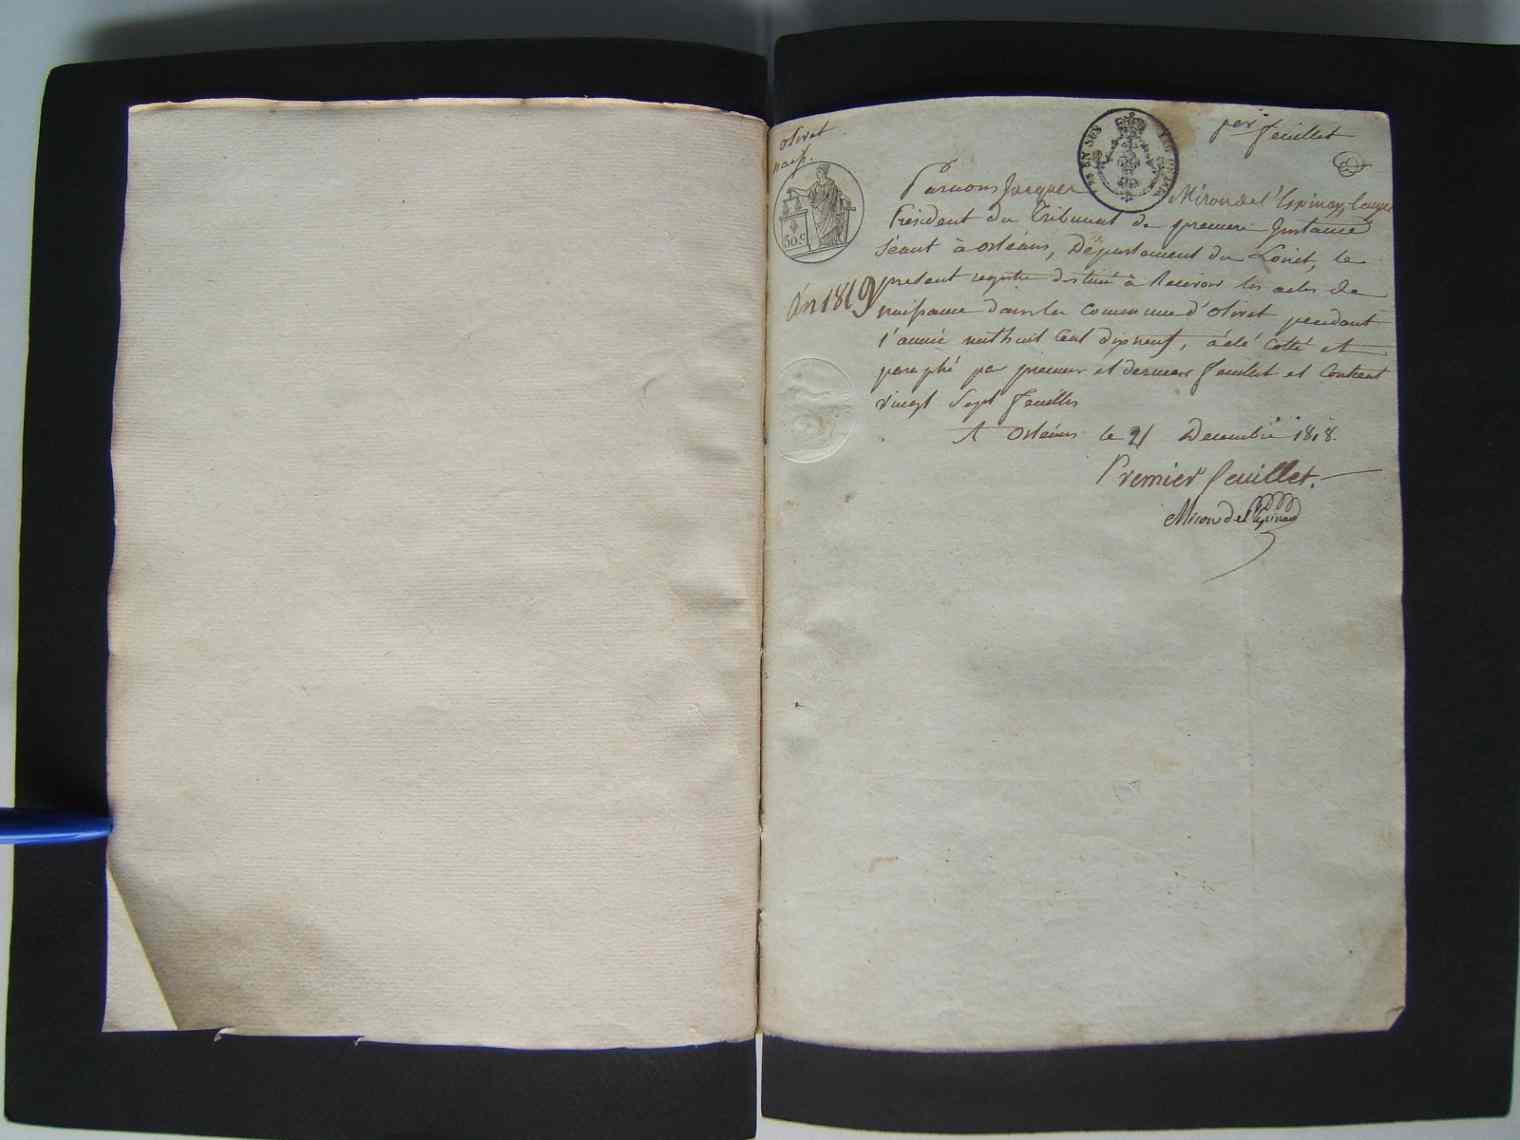 olivet
naiss.
50.c
an 1819
TIM EN SUS
per feuillet
Par nous Jacques Miron de l'Espinay, Conyer
Président du Tribunal de premiere Instance
Séant à orléans, Département du Loiret, le
présent registre destiné à Recevoir les actes de
naissance dans la Commune d'olivet pendant
l'année mil huit Cent dix neuf, à été Cotté et
paraphé par premier et dernier feuillet et Contient
vingt Sept feuilles
A Orléans le 21 Decembre 1818.
Premier feuillet.
Miron de l'Espinay